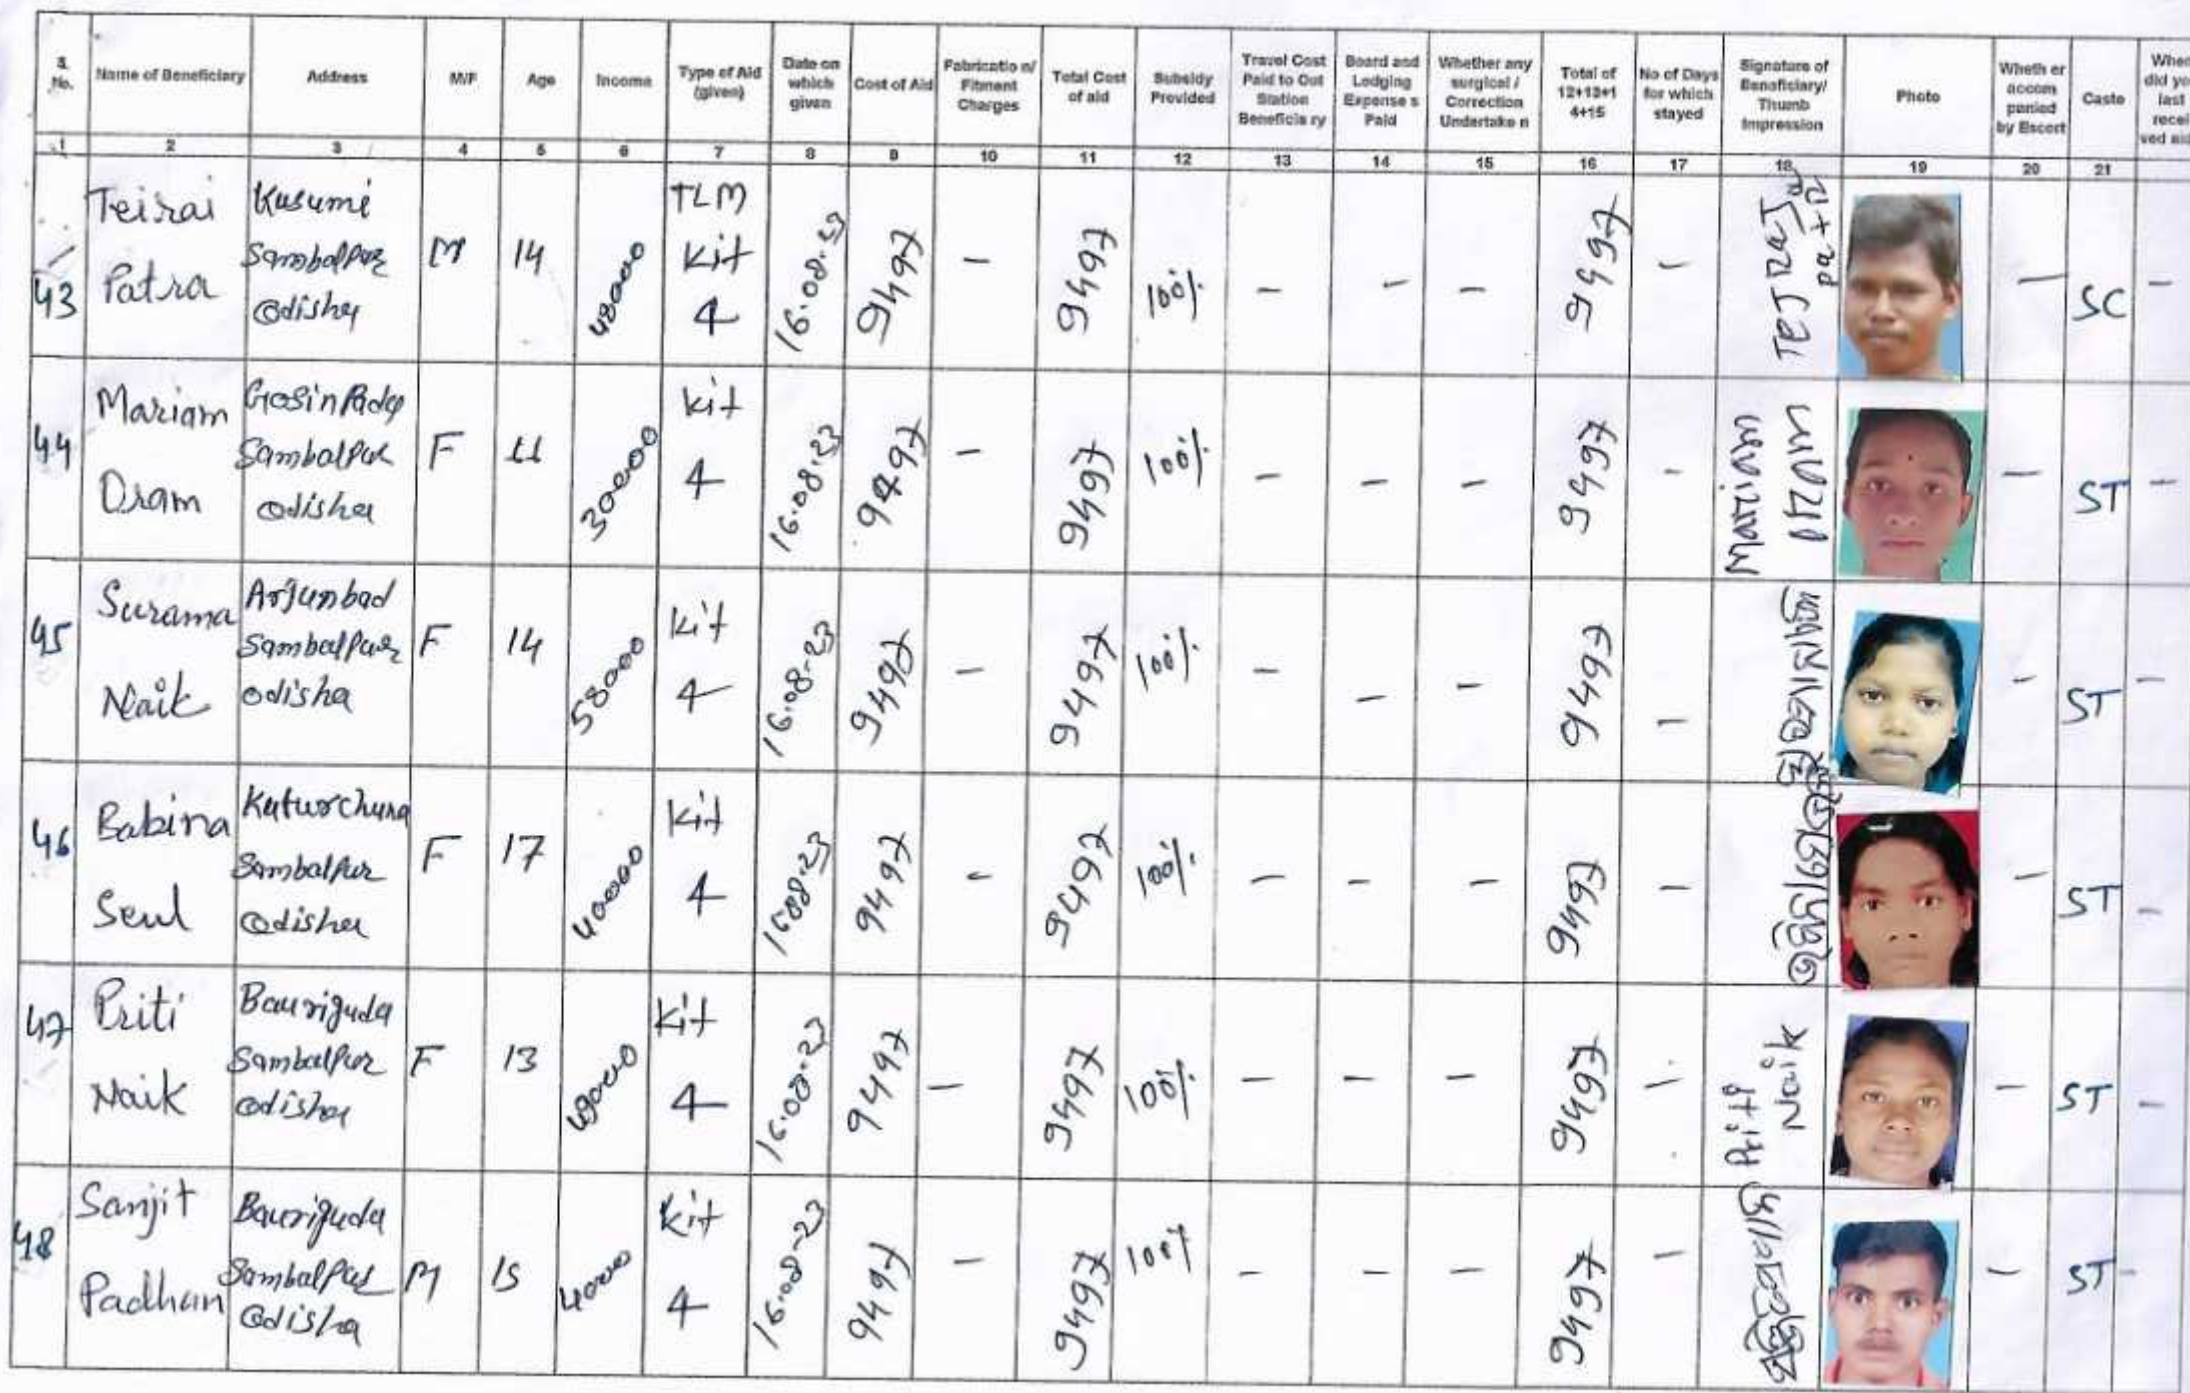 S. No.
Name of Beneficiary
Address
M/F
Age
Income
Type of Aid (given)
Date on which given
Cost of Aid
Fabricatio n/ Fitment Charges
Total Cost of aid
Subsidy Provided
Travel Cost Paid to Out Station Beneficia ry
Board and Lodging Expense s Paid
Whether any surgical / Correction Undertake n
Total of 12+13+1 4+15
No of Days for which stayed
Signature of Beneficiary/ Thumb Impression
Photo
Wheth er accom panied by Escort
Caste
When did you last recei ved aid
1 2 3 4 5 6 7 8 9 10 11 12 13 14 15 16 17 18 19 20 21
43
Teirai
Patra
Kusumi
Sambalpur
Odisha
M
14
48000
TLM
Kit
4
16.08.23
9497
-
9497
100%
-
-
-
9497
-
-
SC
-
44
Mariam
Oram
Gosinpada
Sambalpur
Odisha
F
11
30000
Kit
4
16.08.23
9497
-
9497
100%
-
-
-
9497
-
Mariam
-
ST
-
45
Surama
Naik
Arjunbad
Sambalpur
Odisha
F
14
58000
Kit
4
16.08.23
9497
-
9497
100%
-
-
-
9497
-
-
ST
-
46
Babina
Seul
Kuturchuna
Sambalpur
Odisha
F
17
40000
Kit
4
16.08.23
9497
-
9497
100%
-
-
-
9497
-
-
ST
-
47
Priti
Naik
Bauriguda
Sambalpur
Odisha
F
13
Kit
4
16.08.23
9497
-
9497
100%
-
-
-
9497
-
Priti
Naik
-
ST
-
48
Sanjit
Padhan
Bauriguda
Sambalpur
Odisha
M
15
Kit
4
16.08-23
9497
-
9497
100%
-
-
-
9497
-
-
ST
-